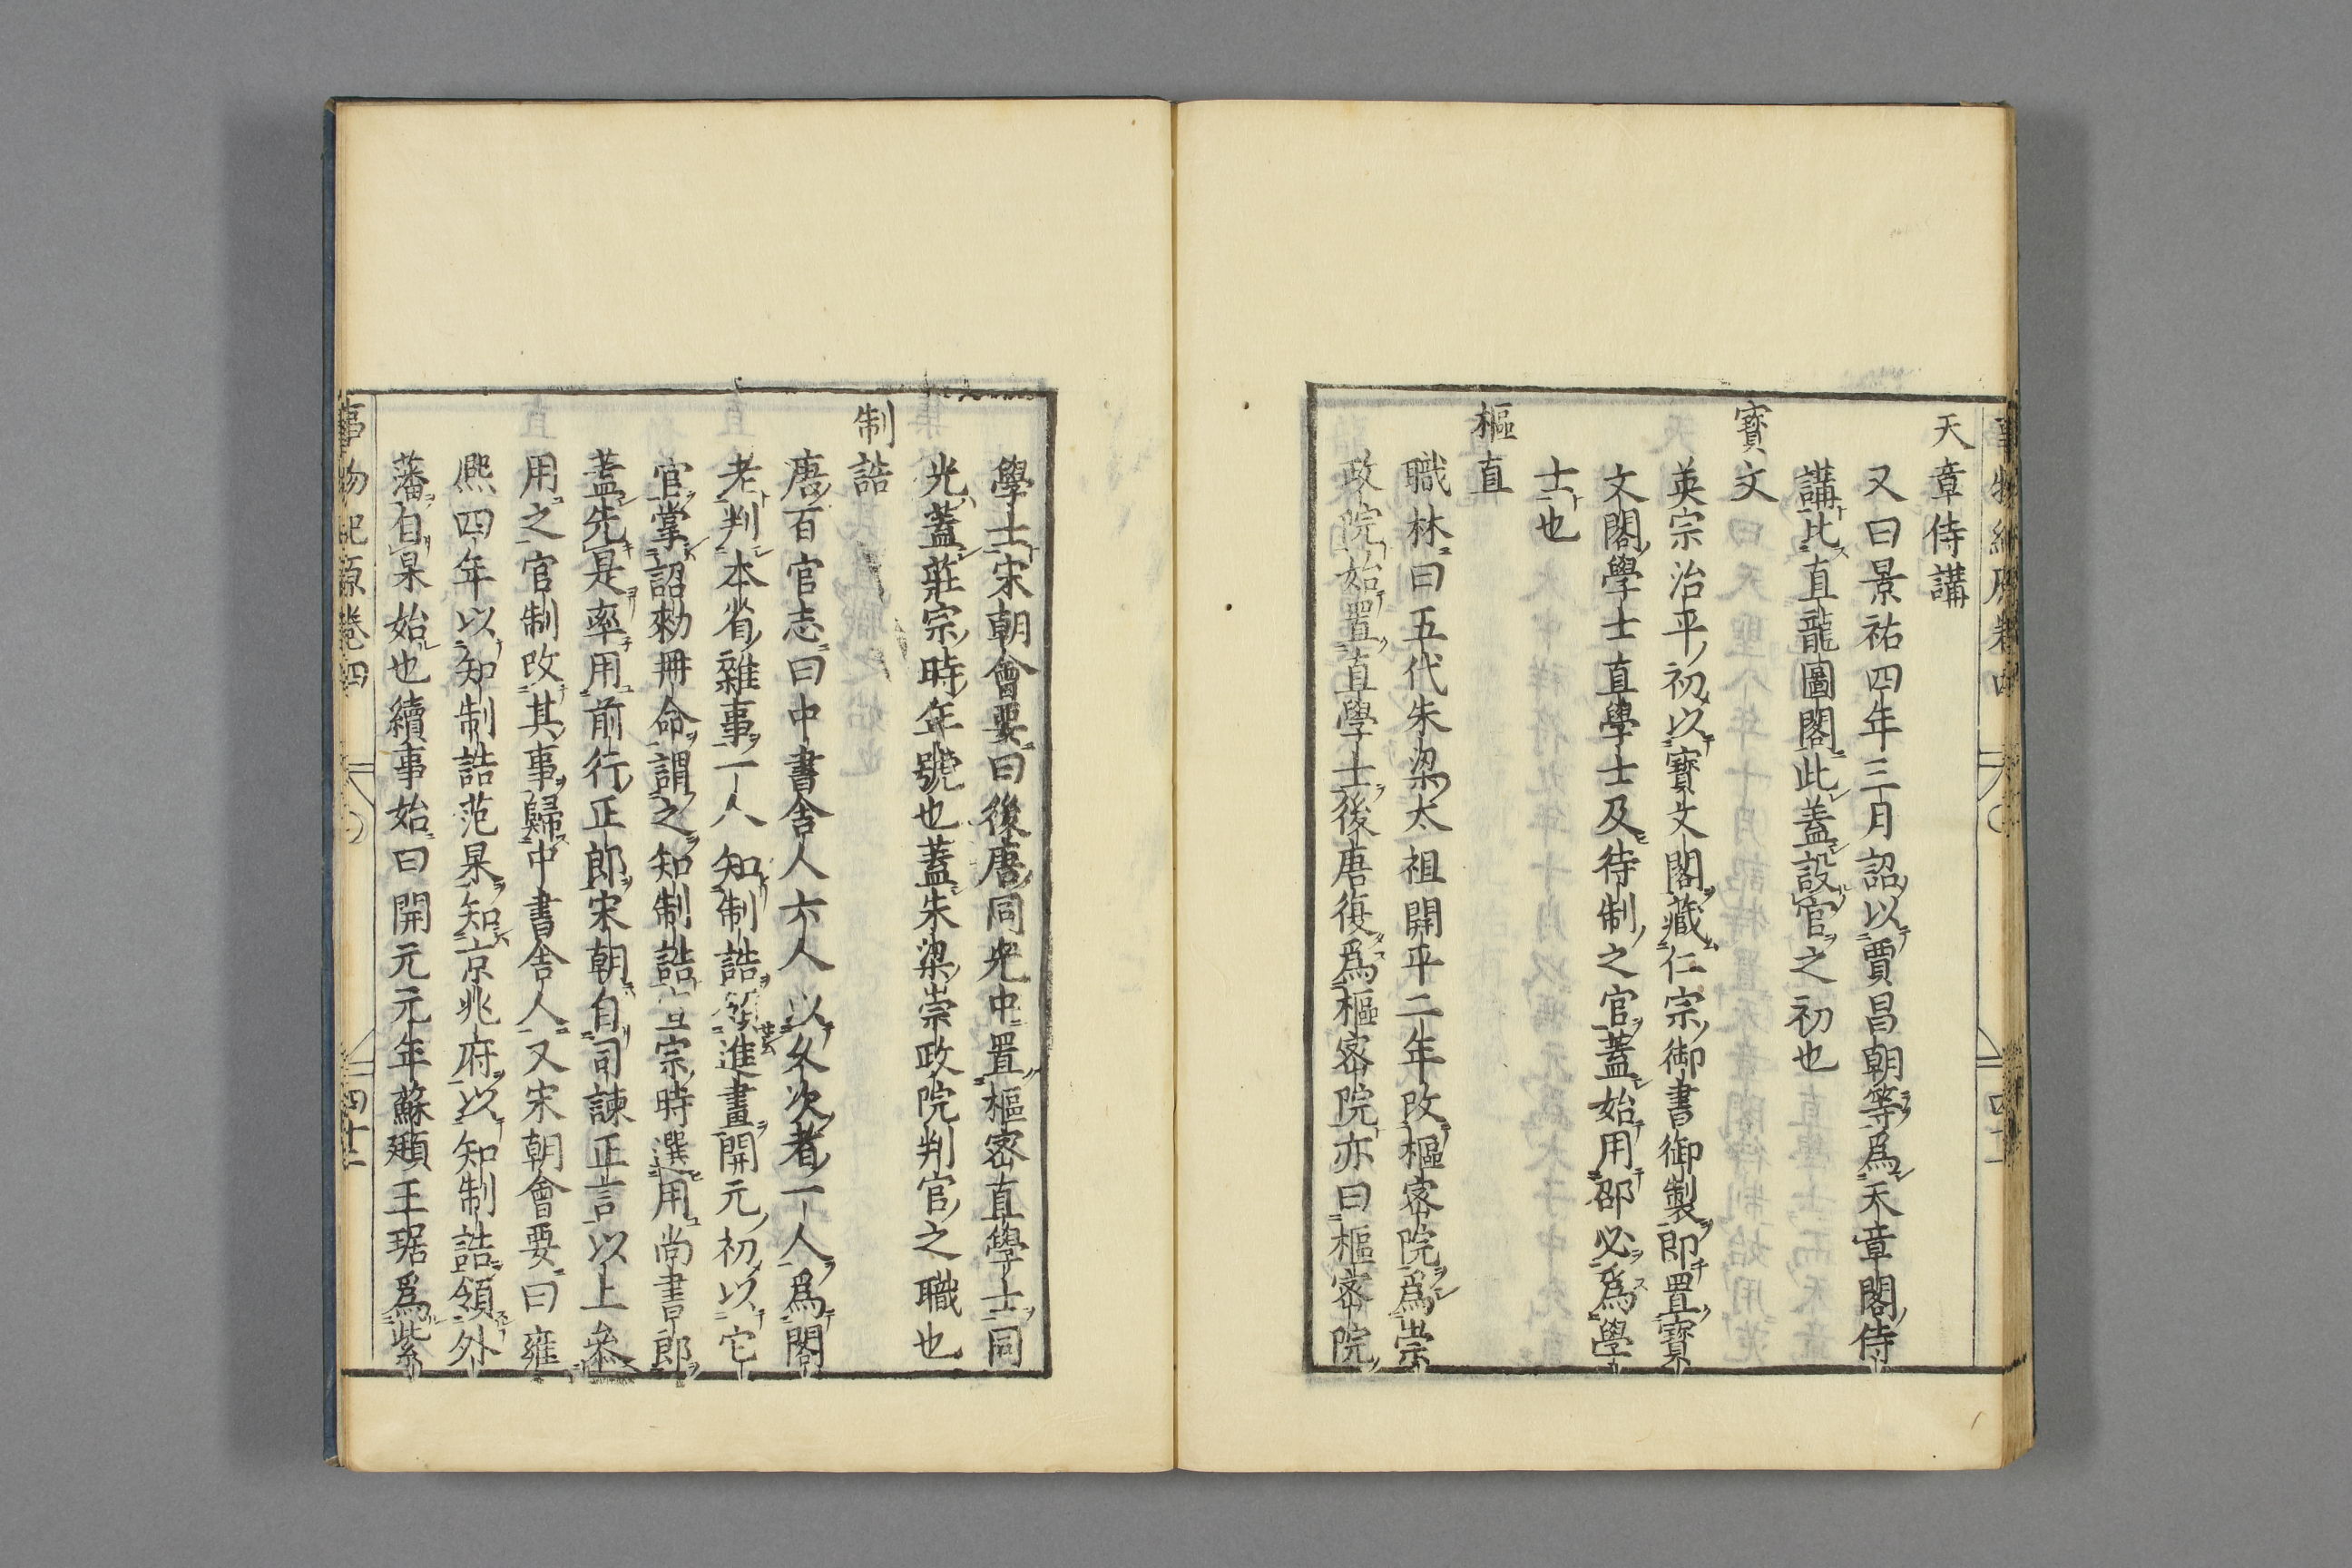 天章侍講
又曰景祐四年三月詔以賈昌朝等爲天章閣侍
講比直龍圖閣此蓋設官之初也
寳文
英宗治平初以寳文閣藏仁宗御書御製即置寳
文閣學士直學士及待制之官蓋始用邵必爲學
士也
樞直
職林曰五代朱梁太祖開平二年改樞密院爲崇
政院始置直學士後唐復爲樞密院亦曰樞密院
學士宋朝會要曰後唐同光中置樞密直學士同
光蓋莊宗時年號也蓋朱梁崇政院判官之職也
制誥
唐百官志曰中書舍人六人以久次者一人爲閣
老判本省雜事一人知制誥進畫開元初以它
官掌詔勑冊命謂之知制誥宗時選用尚書郎
蓋先是率用前行正郎宋朝自司諫正言以上叅
用之官制改其事歸中書舍人又宋朝會要曰雍
熈四年以知制誥范杲知京兆府以知制誥領外
藩自杲始也續事始曰開元元年蘇頲王琚爲紫
事物紀原卷四 四十二